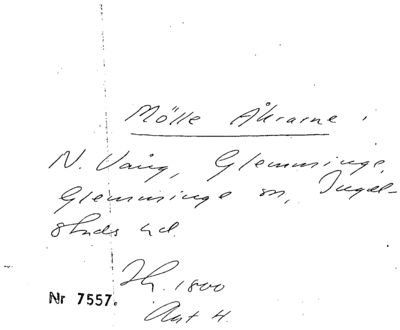 Mölle Åkrarne.
N. Vång, Glemminge,
Glemminge sn, Ingel-
stads hd.
Jfr. 1800
Nr 7557.
Akt 4.